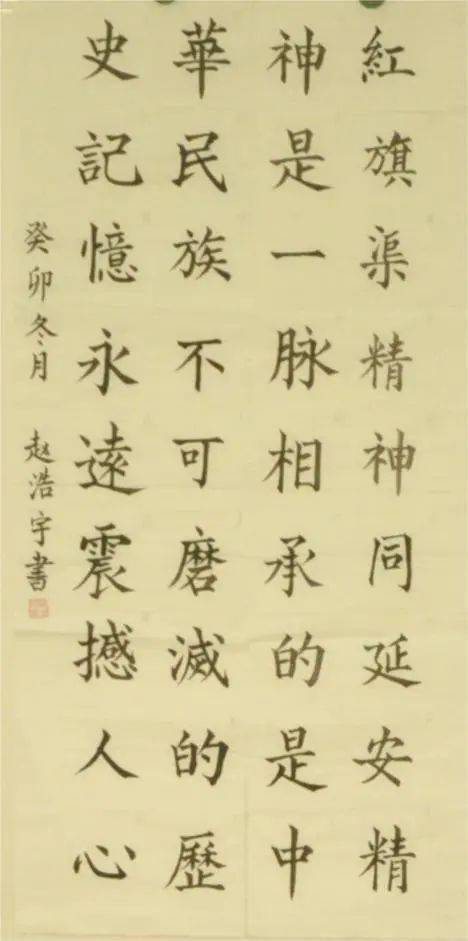 紅旗渠精神同延安精
神是一脉相承的是中
華民族不可磨滅的歷
史記憶永遠震撼人心
癸卯冬月 赵浩宇書